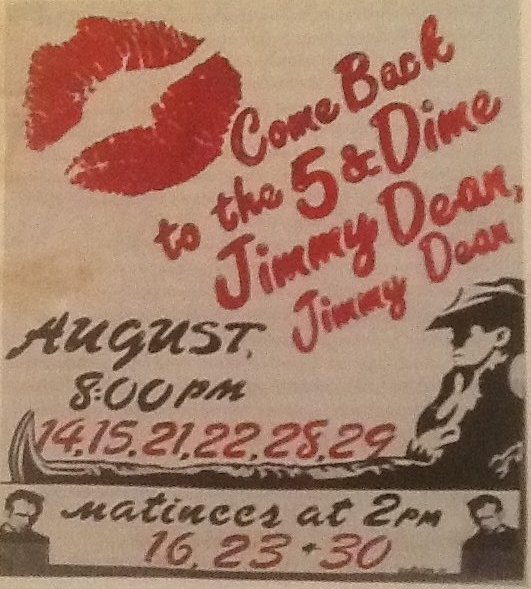 Come Back
to the 5 & Dime
Jimmy Dean,
Jimmy Dean
AUGUST,
8:00 PM
14, 15, 21, 22, 28, 29
matinees at 2PM
16, 23 + 30